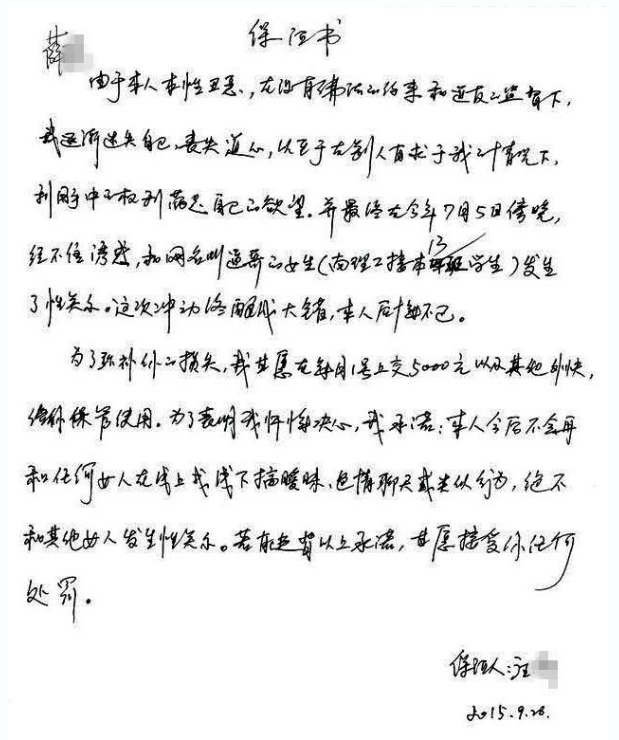 保证书
薛
由于本人本性丑恶，在没有佛法的约束和道友的监督下，
我逐渐迷失自己，丧失道心，以至于在别人有求于我的情况下，
利用手中的权利满足自己的欲望。并最终在今年7月5日傍晚，
经不住诱惑，和网名叫逗哥的女生（南理工接本13班学生）发生
了性关系。这次冲动终酿成大错，本人后悔不已。
为了弥补你的损失，我甘愿在每月1号上交5000元以及其他外快，
给你保管使用。为了表明我忏悔决心，我承诺：本人今后不会再
和任何女人在线上或线下搞暧昧、色情聊天或类似行为，绝不
和其他女人发生性关系。若有违背以上承诺，甘愿接受你任何
处罚。
保证人：汪
2015.9.28.